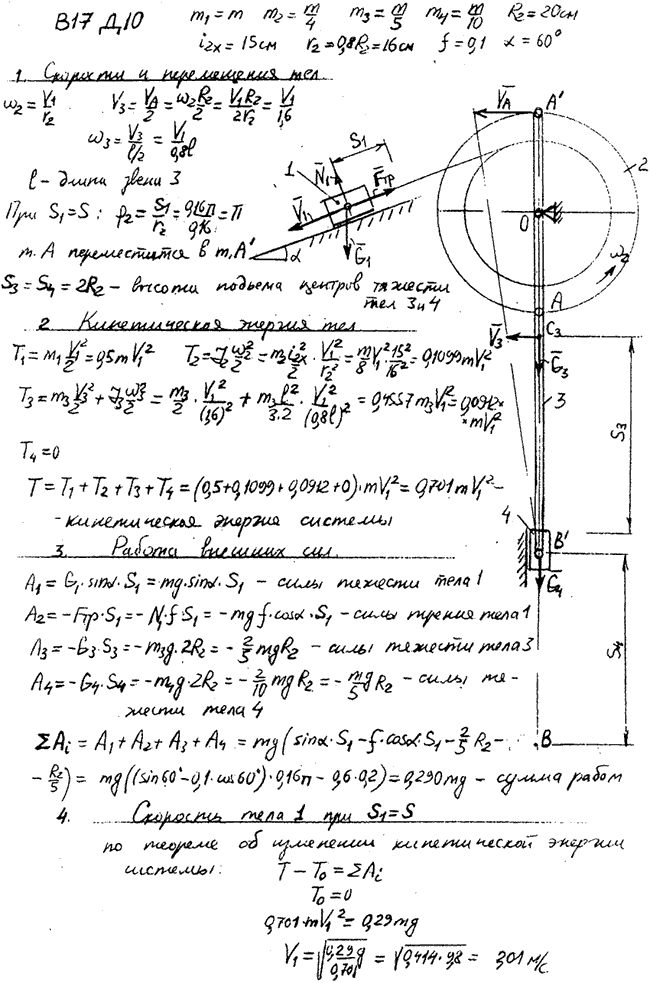 В17 Д10
m₁ = m m₂ = m/4 m₃ = m/5 m₄ = m/10 R₂ = 20см
i₂ₓ = 15см r₂ = 0,8R₂ = 16см f = 0,1 α = 60°
1. Скорости и перемещения тел
ω₂ = V₁/r₂ V₃ = V_A/2 = ω₂R₂/2 = V₁R₂/2r₂ = V₁/1,6
ω₃ = V₃/(l/2) = V₁/0,8l
l - длина звена 3
При S₁ = S : φ₂ = S₁/r₂ = 0,16π/0,16 = π
т. A переместится в т. A'
S₃ = S₄ = 2R₂ - высоты подъема центров тяжести
тел 3 и 4
V̄_A A'
2
O
ω₂
A
C₃
V̄₃
Ḡ₃
3
S₃
4
B'
Ḡ₄
S₄
B
1 N̄₁ S₁ F̄тр
V̄₁
Ḡ₁
α
2 Кинетическая энергия тел
T₁ = m₁V₁²/2 = 0,5mV₁² T₂ = J₂ω₂²/2 = m₂i₂ₓ²/2 · V₁²/r₂² = m/8 V₁² 15²/16² = 0,1099mV₁²
T₃ = m₃V₃²/2 + J₃ω₃²/2 = m₃/2 · V₁²/(1,6)² + m₃l²/3·2 · V₁²/(0,8l)² = 0,4557m₃V₁² = 0,0912×
×mV₁²
T₄ = 0
T = T₁ + T₂ + T₃ + T₄ = (0,5 + 0,1099 + 0,0912 + 0) · mV₁² = 0,701mV₁² -
- кинетическая энергия системы
3. Работа внешних сил.
A₁ = G₁·sinα·S₁ = mg·sinα·S₁ - силы тяжести тела 1
A₂ = -Fтр·S₁ = -N₁·f·S₁ = -mgf·cosα·S₁ - силы трения тела 1
A₃ = -G₃·S₃ = -m₃g·2R₂ = -2/5 mgR₂ - силы тяжести тела 3
A₄ = -G₄·S₄ = -m₄g·2R₂ = -2/10 mgR₂ = -m/5 gR₂ - силы тя-
жести тела 4
ΣAᵢ = A₁ + A₂ + A₃ + A₄ = mg(sinα·S₁ - f·cosα·S₁ - 2/5 R₂ -
- R₂/5) = mg((sin60° - 0,1·cos60°)·0,16π - 0,6·0,2) = 0,290mg - сумма работ
4. Скорость тела 1 при S₁ = S
по теореме об изменении кинетической энергии
системы: T - T₀ = ΣAᵢ
T₀ = 0
0,701·mV₁² = 0,29mg
V₁ = √(0,29g/0,701) = √(0,414·9,8) = 2,01 м/с.